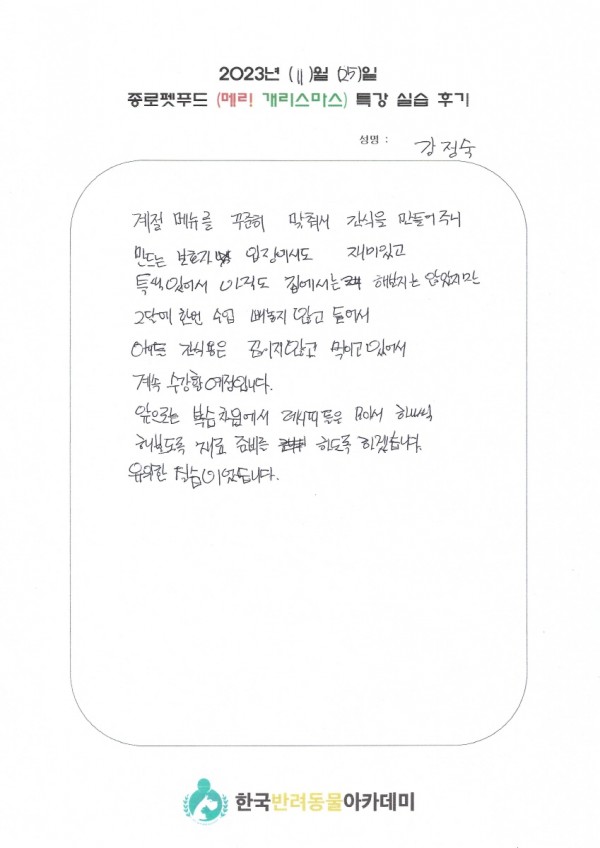 2023년 (11)월 (25)일
종로펫푸드 (메리 개리스마스) 특강 실습 후기
성명 : 강정숙
계절 메뉴를 꾸준히 맞춰서 간식을 만들어 주니
만드는 보호자 입장에서도 재미있고
아직도 집에서는 해보지는 않았지만
2달에 한번 수업 빼놓지 않고 들어서
애들 간식용은 끊이지않고 먹이고 있어서
계속 수강할 예정입니다.
앞으로는 복습 차원에서 레시피들은 모아서 하나씩
해보도록 재료 준비를 하도록 하겠습니다.
유익한 실습이었습니다.
한국반려동물아카데미